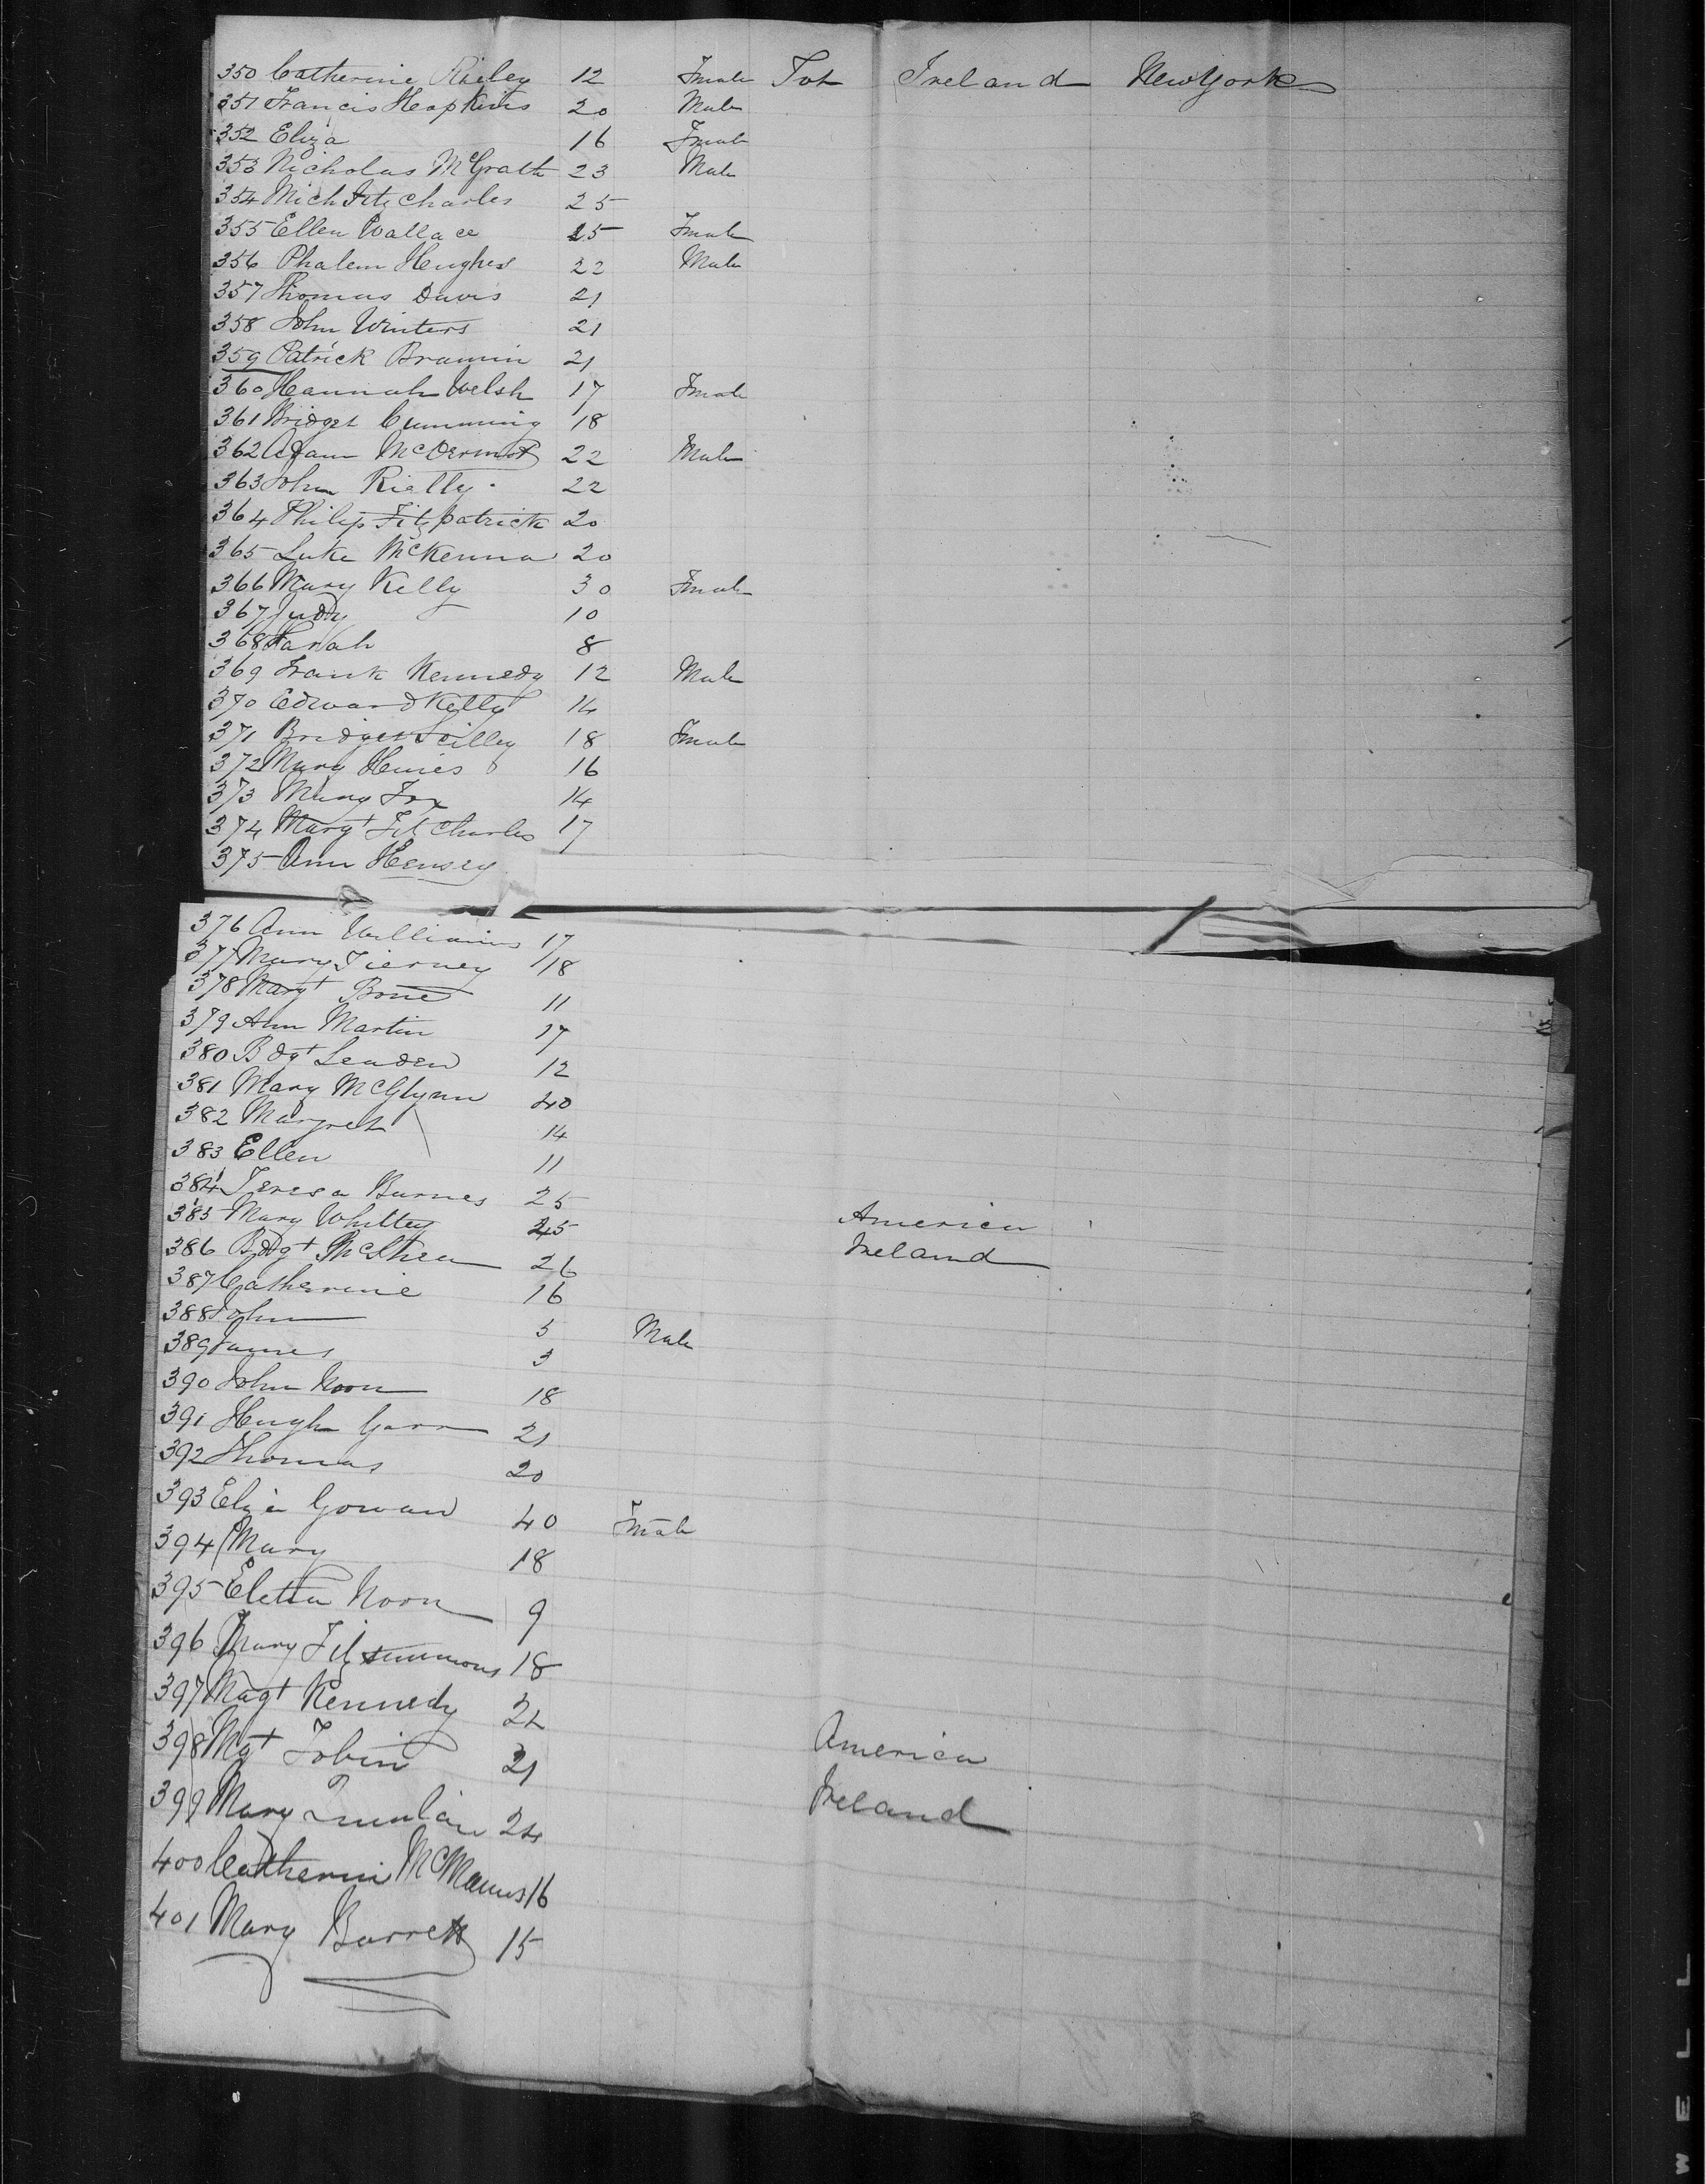 350 Catherine Rieley 12 Fmale Tot Ireland New York
351 Francis Hopkins 20 Male
352 Eliza 16 Fmale
353 Nicholas McGrath 23 Male
354 Mich Fitz Charles 25
355 Ellen Wallace 25 Fmale
356 Phalem Hughes 22 Male
357 Thomas Davis 21
358 John Winters 21
359 Patrick Brannin 21
360 Hannah Welsh 17 Fmale
361 Bridget Cumming 18
362 Adam McDermot 22 Male
363 John Rielly 22
364 Philip Fitzpatrick 20
365 Luke McKenna 20
366 Mary Kelly 30 Fmale
367 Judy 10
368 Sarah 8
369 Frank Kennedy 12 Male
370 Edward Kelly 14
371 Bridget 18 Fmale
372 Mary Hines 16
373 Mary Fox 14
374 Margt Fit Charles 17
375 Ann Hensey
376 Ann Williams 17
377 Mary Tierney 18
378 Margt Bone 11
379 Ann Martin 17
380 Bdgt Leaden 12
381 Mary McGlynn 40
382 Margret 14
383 Ellen 11
384 Teresa Burnes 25
385 Mary Whittey 25 America
386 Bdgt McShea 26 Ireland
387 Catherine 16
388 John 5 Male
389 James 3
390 John Noon 18
391 Hugh Garr 21
392 Thomas 20
393 Eliza Gowan 40 Fmale
394 Mary 18
395 Noon 9
396 Mary Fitzsimmons 18
397 Magt Kennedy 22
398 Mgt Tobin 21 America
399 Mary Quinlan 24 Ireland
400 Catherin McManus 16
401 Mary Barrett 15
WELL